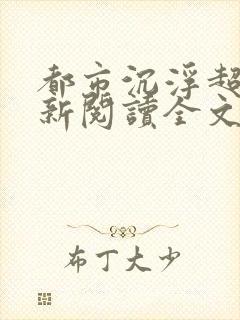 都市沉浮超
新閱讀全文
布丁大少